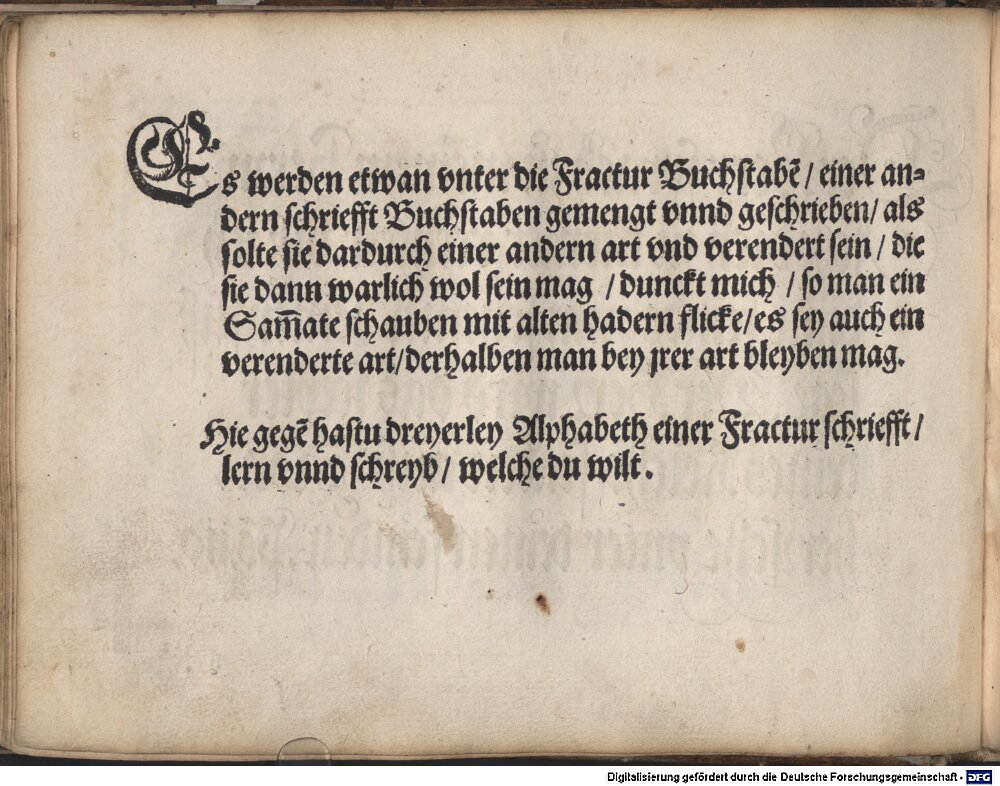 Es werden etwan vnter die Fractur Buchstabē / einer an⸗
dern schriefft Buchstaben gemengt vnnd geschrieben / als
solte sie dardurch einer andern art vnd verendert sein / die
sie dann warlich wol sein mag / dunckt mich / so man ein
Sam̄ate schauben mit alten hadern flicke / es sey auch ein
verenderte art / derhalben man bey jrer art bleyben mag.
Hie gegē hastu dreyerley Alphabeth einer Fractur schriefft /
lern vnnd schreyb / welche du wilt.
Digitalisierung gefördert durch die Deutsche Forschungsgemeinschaft - DFG